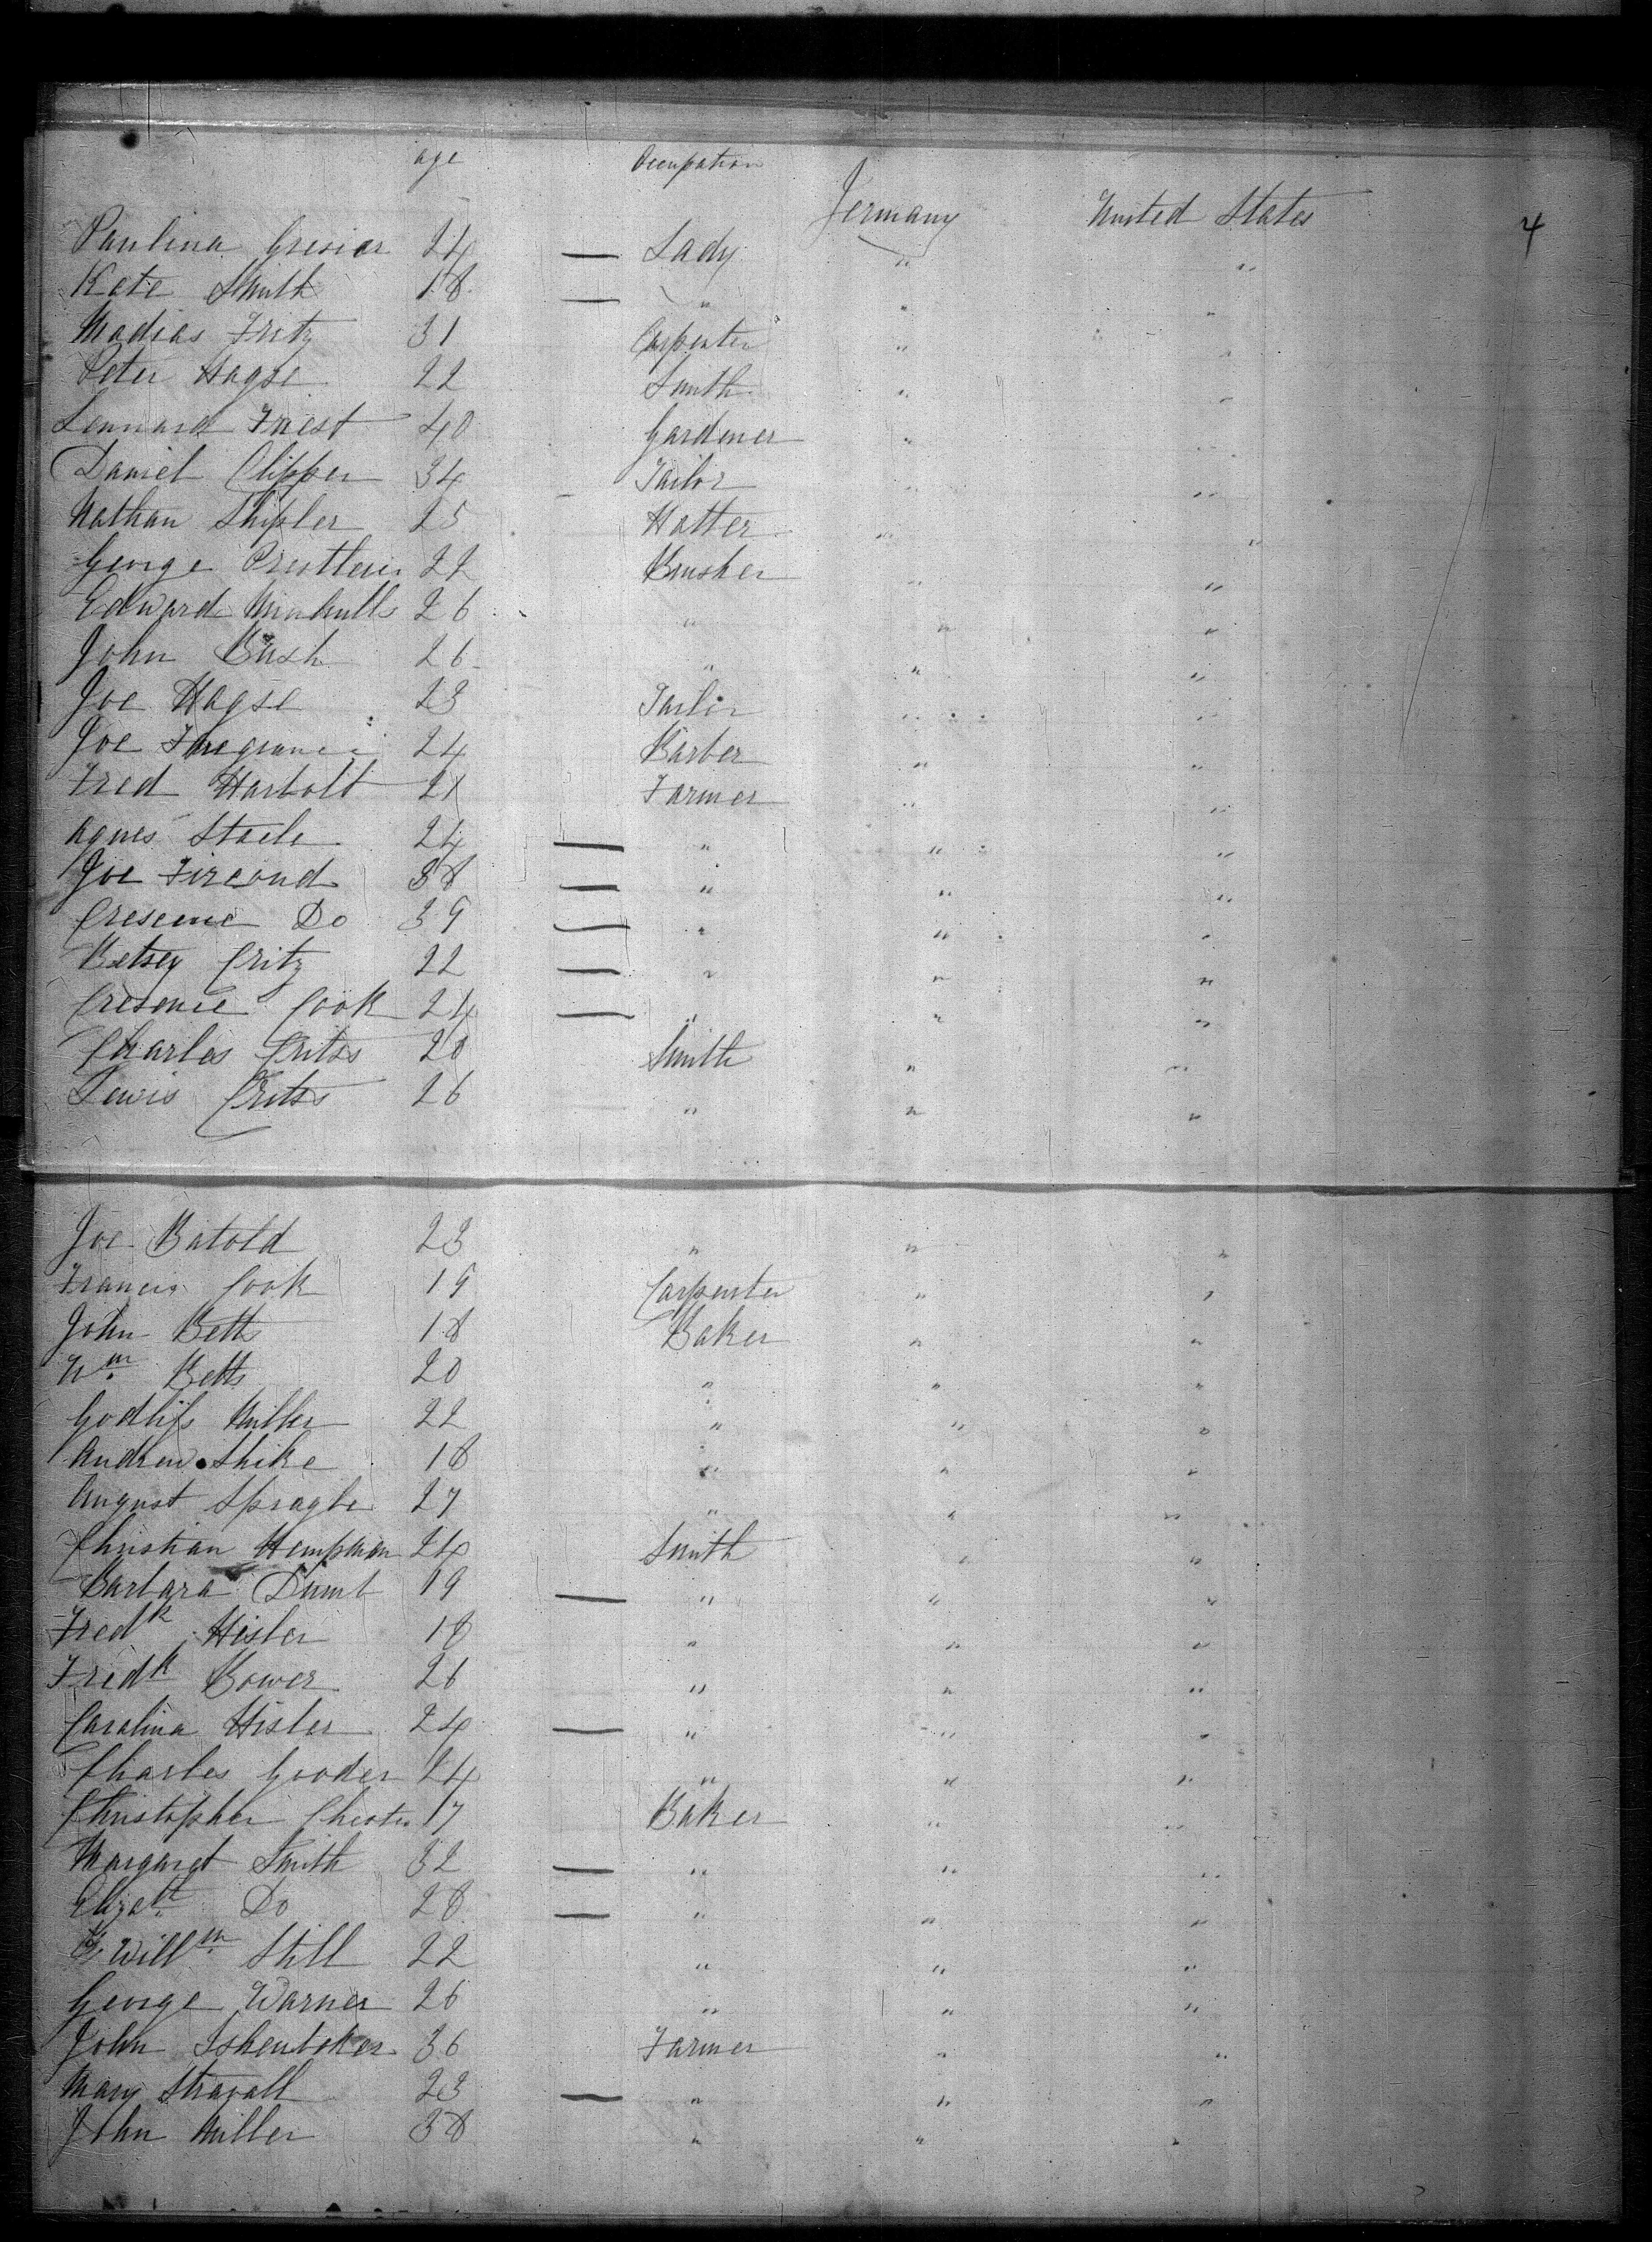 age Occupation
Germany United States 4
Paulina Gresier 24 — Lady " "
Kate Smith 18 — " " "
Madias Fritz 31 Carpenter " "
Peter Hagse 22 Smith " "
Lennard Friest 40 Gardener " "
Daniel Clipper 34 Tailor " "
Nathan Shipler 25 Hatter " "
George 22 Brusher " "
Edward 26 " " "
John Bush 26 " " "
Joe Hagse 23 Tailor " "
Joe 24 Barber " "
Fred Harbolt 21 Farmer " "
Agnes Staele 24 — " " "
Joe Fircond 38 — " " "
Cresence Do 39 — " " "
Betsey Critz 22 — " " "
Cresence Cook 24 — " " "
Charles Crites 20 Smith " "
Lewis Crites 26 " " "
Joe Batold 23 " " "
Francis Cook 19 Carpenter " "
John Betts 18 Baker " "
Wm Betts 20 " " "
Godlif Miller 22 " " "
Andrew Shike 18 " " "
August Spragle 27 " " "
Christian Hempman 24 Smith " "
Barbara Dumb 19 — " " "
Fredk Hisler 18 " " "
Fredk Bower 26 " " "
Carolina Hisler 24 — " " "
Charles Gooder 24 " " "
Christopher 17 Baker " "
Margaret Smith 32 — " " "
Elizabt Do 28 — " " "
Willm Still 22 " " "
George Warner 26 " " "
John Ishenbeker 36 Farmer " "
Mary Stravall 23 — " " "
John Miller 38 " " "